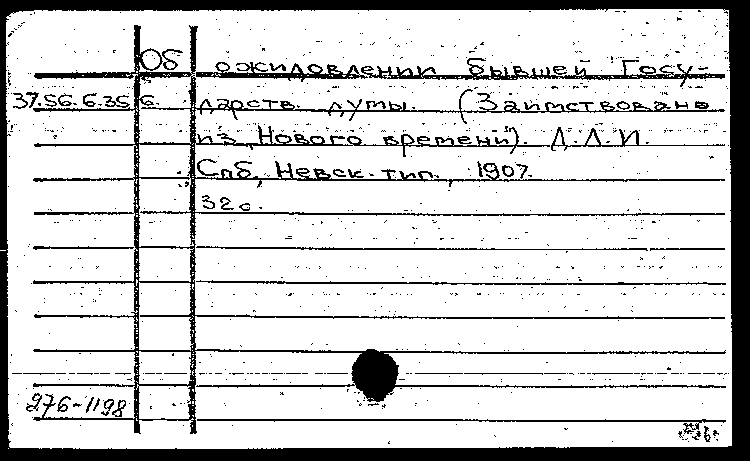 Об ожидовлении бывшей Госу-
37.56.6.356. дарств. думы. (Заимствовано
из „Нового времени"). Л.Л.И.
Спб, Невск. тип., 1907.
32с.
276-1198